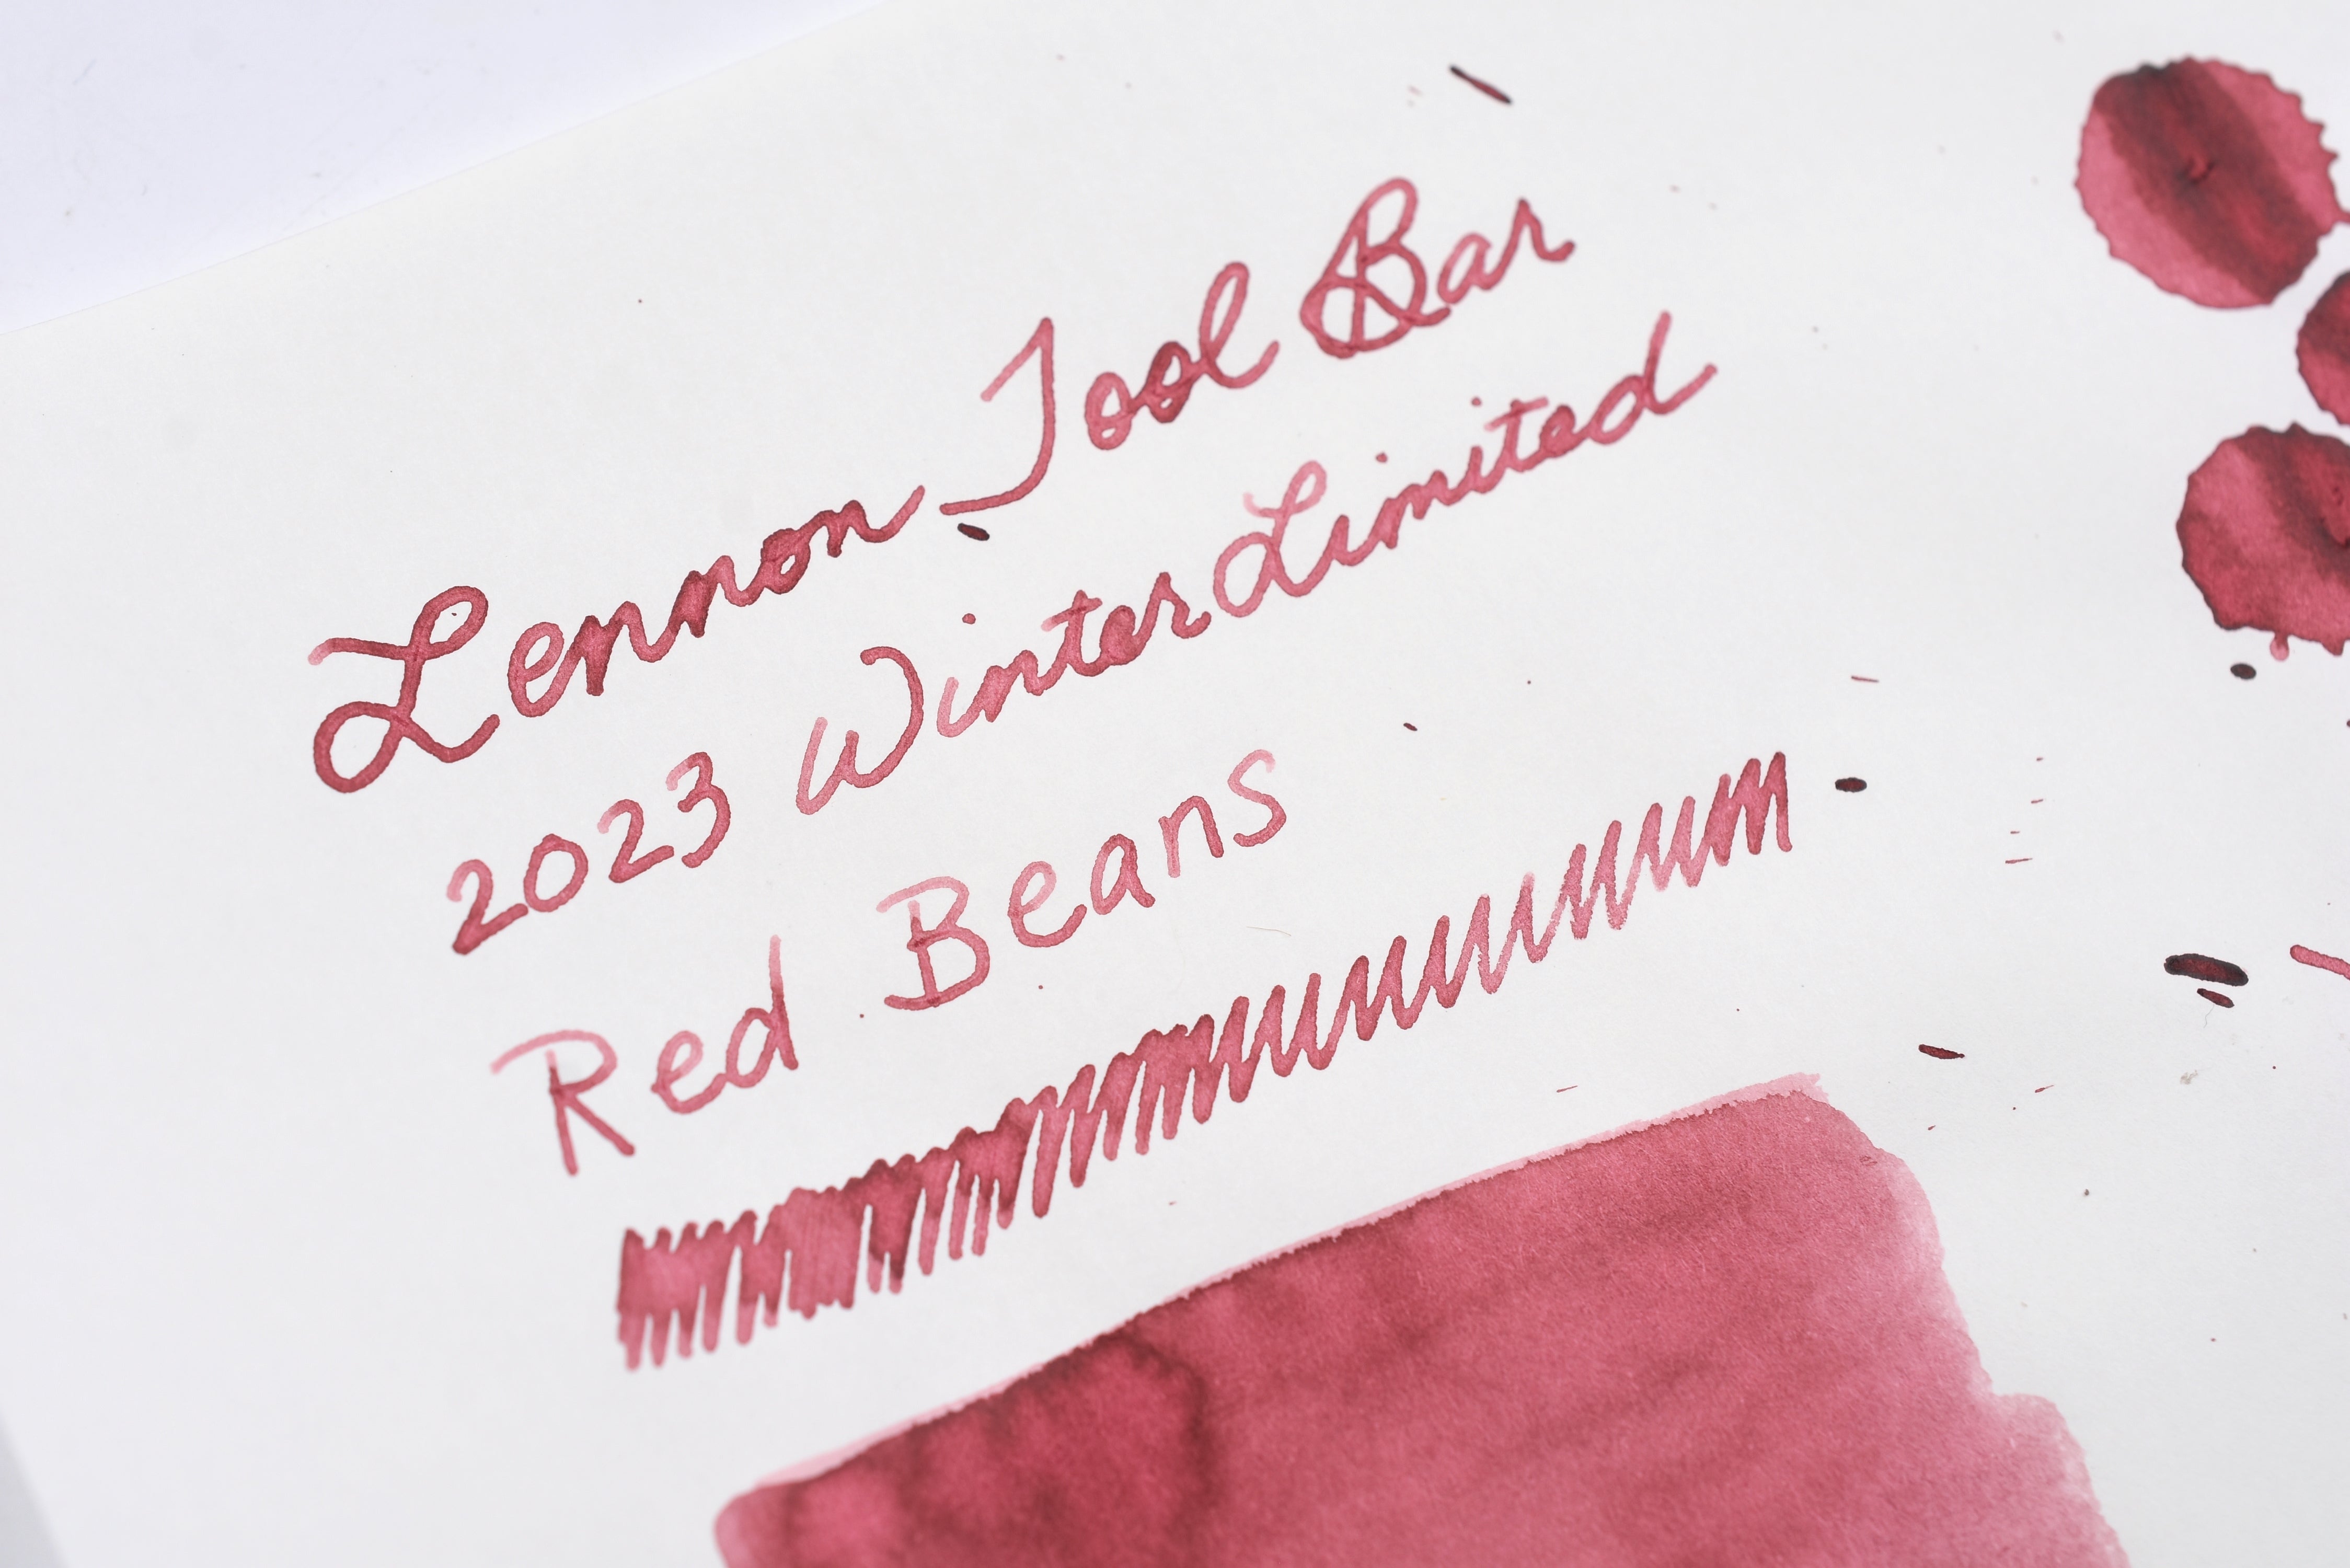 Lennon Tool Bar
2023 Winter Limited
Red Beans